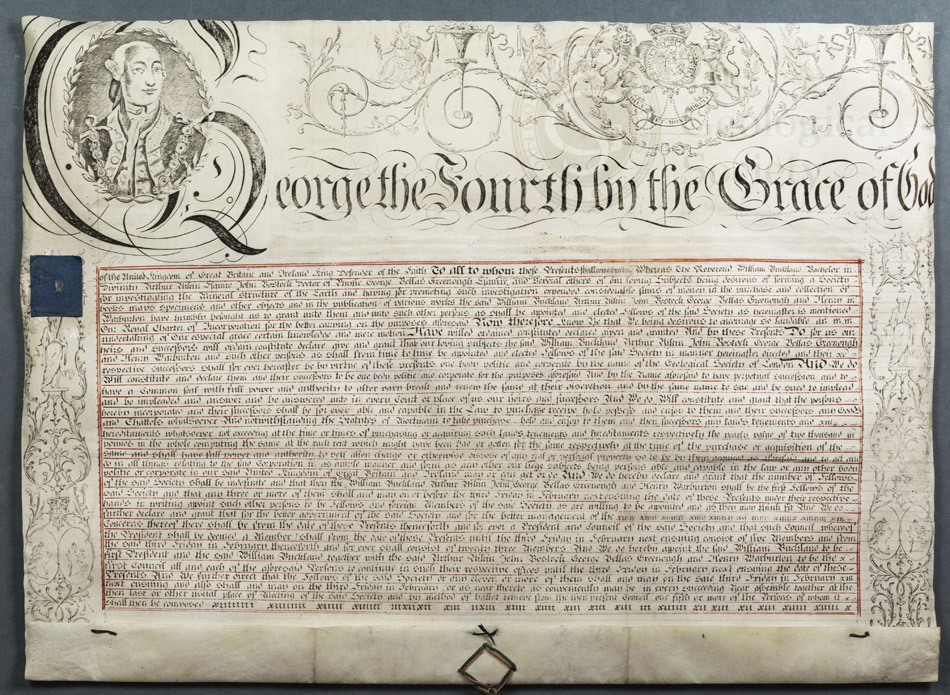 George the Fourth by the Grace of God
of the United Kingdom of Great Britain and Ireland King Defender of the Faith To all to whom these Presents shall come Greeting Whereas The Reverend William Buckland Bachelor in
Divinity Arthur Aikin Esquire John Bostock Doctor of Physic George Bellas Greenough Esquire and several others of our loving Subjects being desirous of forming a Society
for investigating the Mineral Structure of the Earth and having for promoting such investigation expended considerable sums of money in the purchase and collection of
books maps specimens and other objects and in the publication of various works the said William Buckland Arthur Aikin John Bostock George Bellas Greenough and Henry
Warburton have humbly besought us to grant unto them and unto such other persons as shall be appointed and elected Fellows of the said Society as hereinafter is mentioned
Our Royal Charter of Incorporation for the better carrying on the purposes aforesaid Now therefore know Ye that We being desirous to encourage so laudable an
undertaking of our especial grace certain knowledge and mere motion Have willed granted and declared and by these Presents Do for our
heirs and successors will ordain constitute declare give and grant that our loving subjects the said William Buckland Arthur Aikin John Bostock George Bellas Greenough
and Henry Warburton and such other persons as shall from time to time be appointed and elected Fellows of the said Society in manner hereinafter directed and their
respective successors shall for ever hereafter be by virtue of these presents one body politic and corporate by the name of the Geological Society of London And We do
Will constitute and declare them and their successors to be one body politic and corporate for the purposes aforesaid And by the Name aforesaid to have perpetual succession and to
have a Common Seal with full power and authority to alter vary break and renew the same at their discretion and by the same name to sue and be sued to implead
and be impleaded and answer and be answered unto in every Court or place of us our heirs and successors And We do Will constitute and grant that the persons
hereby incorporated and their successors shall be for ever able and capable in the Law to purchase receive hold possess and enjoy to them and their successors any Goods
and Chattels whatsoever And notwithstanding the Statutes of Mortmain to take purchase hold and enjoy to them and their successors any lands tenements and
hereditaments whatsoever not exceeding at the time or times of purchasing or acquiring such lands tenements and hereditaments respectively the yearly value of two thousand
pounds in the whole computing the same at the rack rent which might have been had or gotten for the same respectively at the time of the purchase or acquisition of the
same and shall have full power and authority to sell alien charge or otherwise dispose of any real or personal property so to be by them acquired as aforesaid and to act and
do in all things relating to the said Corporation in as ample manner and form as any other our liege subjects being persons able and capable in the law or any other body
politic or corporate in our said United Kingdom of Great Britain and Ireland may or can act or do And We do hereby declare and grant that the number of Fellows
of the said Society shall be indefinite and that they the William Buckland Arthur Aikin John George Bellas Greenough and Henry Warburton shall be the first Fellows of the
said Society and that any three or more of them shall and may on or before the third Friday in February next ensuing the date of these Presents under their respective
hands in writing appoint such other persons to be Fellows and foreign Members of the said Society as are willing to be appointed and as they may think fit And We do
further declare and grant that for the better government of the said Society and for the better management of the
Concerns thereof there shall be from the date of these Presents thenceforth and for ever a President and Council of the said Society and that such Council inclusive of
the President shall be deemed a Member shall from the date of these Presents until the third Friday in February next ensuing consist of five Members and from
the said third Friday in February thenceforth and for ever shall consist of twenty three Members And We do hereby appoint the said William Buckland to be
first President and the said William Buckland together with the said Arthur Aikin John Bostock George Bellas Greenough and Henry Warburton to be the
first Council all and each of the aforesaid Persons to continue in such their respective offices until the third Friday in February next ensuing the date of these
Presents And We further direct that the Fellows of the said Society or any eleven or more of them shall and may on the said third Friday in February
next ensuing and also shall and may on the third Friday in February or as near thereto as conveniently may be in every succeeding Year assemble together at the
then last or other usual place of Meeting of the said Society and by method of ballot remove from the then present Council one fifth or more of the Persons of whom it
shall then be composed